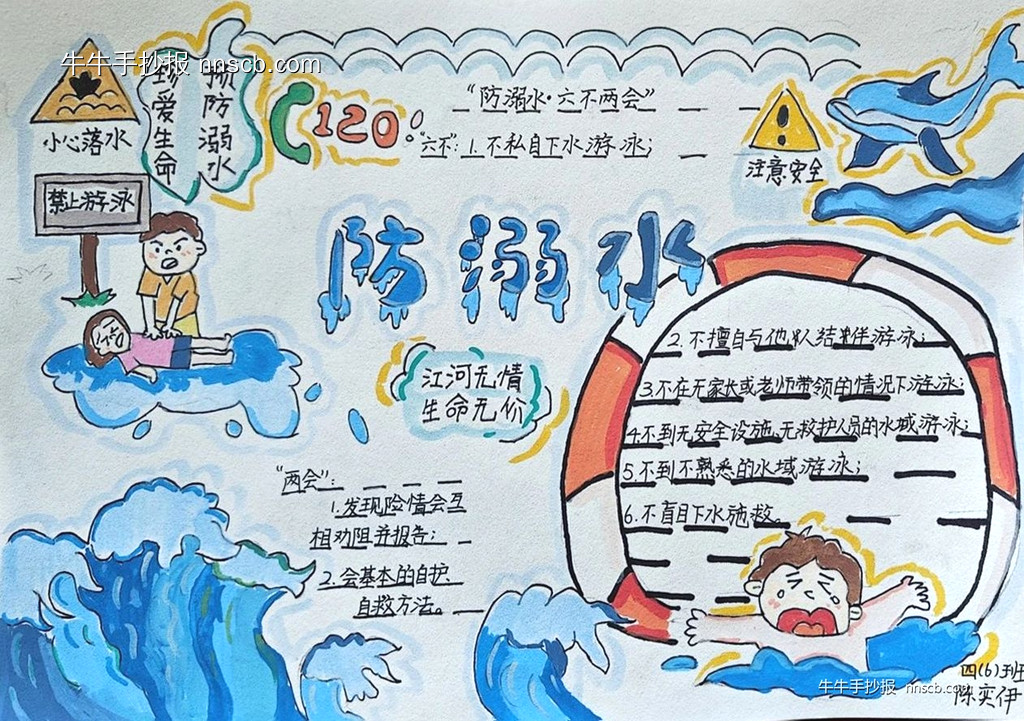 牛牛手抄报 nnscb.com
小心落水
禁止游泳
珍爱生命
预防溺水
120
“防溺水·六不两会”
“六不”:1.不私自下水游泳;
注意安全
防溺水
2.不擅自与他人结伴游泳;
3.不在无家长或老师带领的情况下游泳;
4.不到无安全设施、无救护人员的水域游泳;
5.不到不熟悉的水域游泳;
6.不盲目下水施救。
江河无情
生命无价
“两会”:
1.发现险情会互
相劝阻并报告;
2.会基本的自护
自救方法。
四(6)班
陈奕伊
牛牛手抄报 nnscb.com